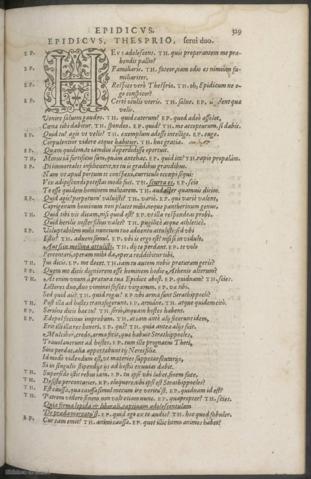 EPIDICVS. 329
EPIDICVS, THESPRIO, serui duo.
EP. HEus adolescens. TH. quis properantem me prehendit pallio?
EP. Familiaris. TH. fateor, nam odio es nimium familiariter.
EP. Respice verò Thesprio. TH. oh, Epidicum ne ego conspicor?
EP. Certè oculis vteris. TH. salue. EP. dent quæ velis.
Venire saluum gaudeo. TH. quid cæterum? EP. quod adsolet,
Cœna tibi dabitur. TH. spondeo. EP. quid? TH. me accepturum, si dabis.
EP. Quid tu? agis vt velis? TH. exemplum adesse intellego. EP. euge.
Corpulentior videre atque habitior. TH. huic gratia.
EP. Quam quidem te iamdiu perdidisse oportuit.
TH. Minus iam furtificus sum, quàm antehac. EP. quid ita? TH. rapio propalàm.
EP. Di immortales infelicent te, vt tu es gradibus grandibus.
Nam vt apud portum te conspexi, curriculo occœpi sequi:
Vix adipiscendi potestas modò fuit. TH. scurra es. EP. scio
Te esse quidem hominem militarem. TH. audacter quamuis dicito.
EP. Quid agis? perpetuen' valuisti? TH. variè. EP. qui variè valent,
Caprigenum hominum non placet mihi, neque pantherinum genus.
TH. Quid tibi vis dicam, nisi quod est? EP. vt illa respondeas probè.
Quid herilis noster filius valet? TH. pugilicè atque athleticè.
EP. Voluptabilem mihi nuncium tuo aduentu attulisti
Est? TH. aduenit simul. EP. vbi is ergo est? nisi si in vidulo
Aut si in mellina attulisti. TH. di te perdant. EP. te volo
Percontari, operam mihi da, opera reddibitur tibi.
TH. Ius dicis. EP. me decet. TH. iam tu autem nobis præturam geris?
EP. Quem me dicis digniorem esse hominem hodie Athenis alterum?
TH. At enim vnum à prætura tua Epidice abest. EP. quidnam? TH. scies.
Lictores duo, duo viminei fasces virgarum. EP. væ tibi.
Sed quid ais? TH. quid rogas? EP. vbi arma sunt Stratippocli?
TH. Pol illa ad hostes transfugerunt. EP. armáne? TH. atque quidem citò.
EP. Serión dicis hæc tu? TH. seriò, inquam hostes habent.
EP. Edepol facinus improbum. TH. at iam antè alij fecerunt idem,
Erit illi illa res honori. EP. qui? TH. quia antea alijs fuit.
Mulciber, credo, arma fecit, quæ habuit Stratippocles,
Trauolauerunt ad hostes. EP. tum ille prognatus Theti,
Sine perdat, alia apportabunt ei Nerei filiæ.
Id modò videndum est, vt materies suppetat scutarijs,
Si in singulis stipendijs is ad hostis exuuias dabit.
TH. Supersede istis rebus iam. EP. tu ipse vbi lubet finem face.
TH. Desiste percontarier. EP. eloquere, vbi ipsus est Stratippocles?
TH. Est caussa, qua caussa simul mecum ire veritu'st. EP. quidnam id est?
TH. Patrem videre sese non vult etiam nunc. EP. quapropter? TH. scies.
Quia forma lepida & liberali, captiuam adolescentulam
De præda mercatu'st. EP. quid ego ex te audio? TH. hoc quod fabulor.
EP. Cur eam emit? TH. animi caussa. EP. quot illic homo animos habet?